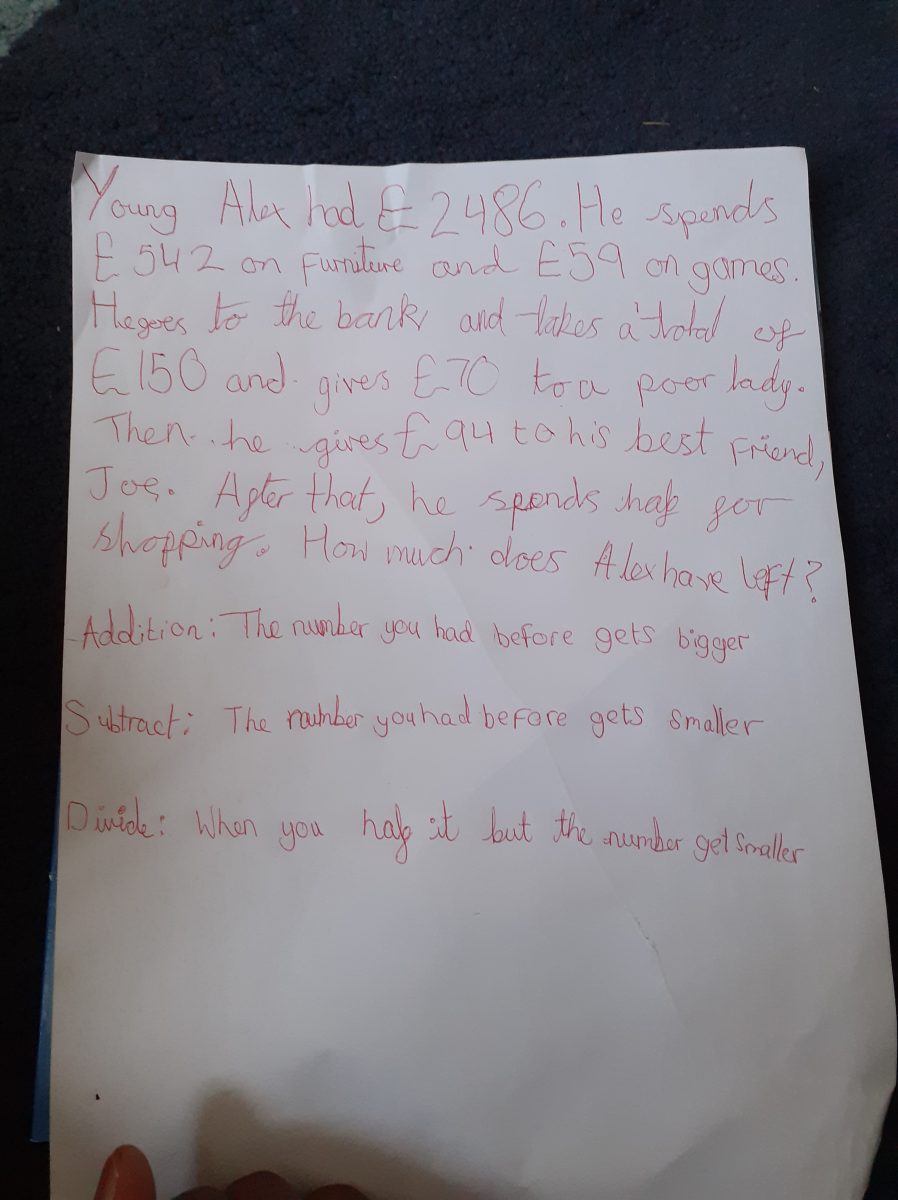 Young Alex had £2486. He spends
£542 on furniture and £59 on games.
He goes to the bank and takes a total of
£150 and gives £70 to a poor lady.
Then he gives £94 to his best friend,
Joe. After that, he spends half for
shopping. How much does Alex have left?
Addition: The number you had before gets bigger
Subtract: The number you had before gets smaller
Divide: When you half it but the number get smaller